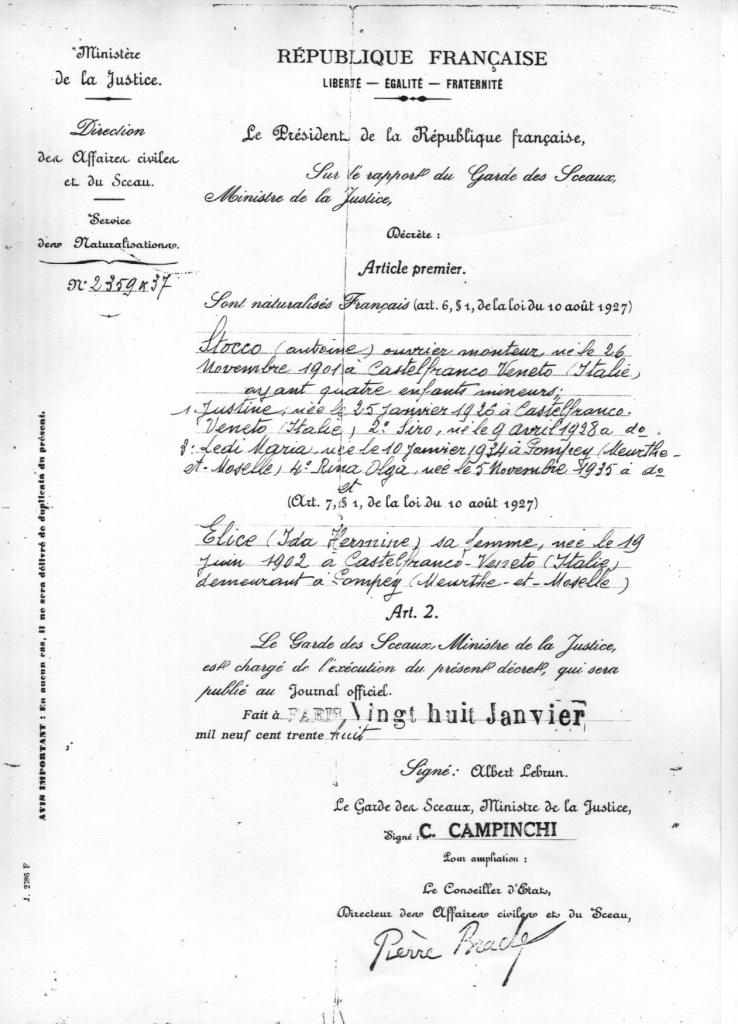 Ministère
de la Justice.
Direction
des Affaires civiles
et du Sceau.
Service
des Naturalisations.
N° 2359 x 37
RÉPUBLIQUE FRANÇAISE
LIBERTÉ — ÉGALITÉ — FRATERNITÉ
Le Président de la République française,
Sur le rapport du Garde des Sceaux,
Ministre de la Justice,
Décrète :
Article premier.
Sont naturalisés Français (art. 6, § 1, de la loi du 10 août 1927)
Stocco (Antoine) ouvrier monteur, né le 26
Novembre 1901 à Castelfranco Veneto (Italie)
ayant quatre enfants mineurs :
1. Justine, née le 25 Janvier 1926 à Castelfranco
Veneto (Italie) 2° Siro, né le 9 avril 1928 à d°.
3° Ledi Maria, née le 10 janvier 1934 à Pompey (Meurthe-
et-Moselle) 4° Rina Olga, née le 5 Novembre 1935 à d°
et
(Art. 7, § 1, de la loi du 10 août 1927)
Elice (Ida Hermine) sa femme, née le 19
juin 1902 à Castelfranco-Veneto (Italie)
demeurant à Pompey (Meurthe-et-Moselle)
Art. 2.
Le Garde des Sceaux, Ministre de la Justice,
est chargé de l'exécution du présent décret, qui sera
publié au Journal officiel.
Fait à PARIS, Vingt huit Janvier
mil neuf cent trente huit
Signé : Albert Lebrun.
Le Garde des Sceaux, Ministre de la Justice,
Signé : C. CAMPINCHI
Pour ampliation :
Le Conseiller d'Etat,
Directeur des Affaires civiles et du Sceau,
Pierre
AVIS IMPORTANT : En aucun cas, il ne sera délivré de duplicata du présent.
J. 2786 F